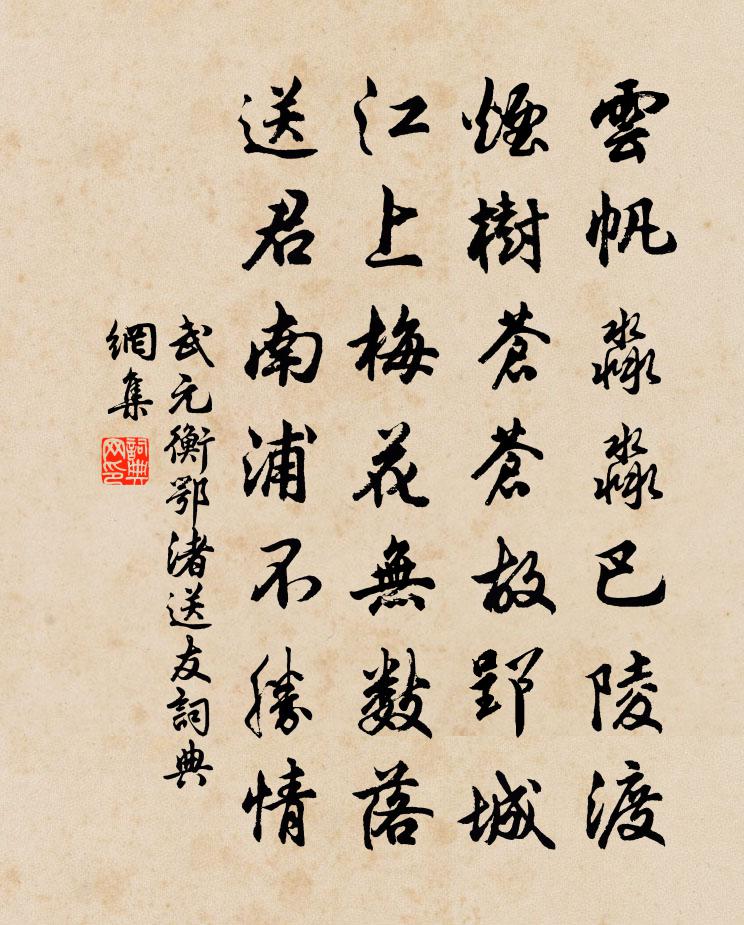 雲帆淼淼巴陵渡
煙樹蒼蒼故郢城
江上梅花無數落
送君南浦不勝情
武元衡鄂渚送友詞典
網集
詞典
网印